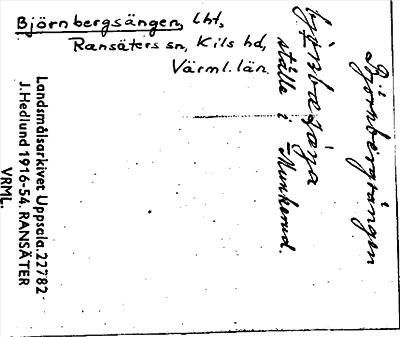 Björnbergsängen, lht,
Ransäters sn, Kils hd,
Värml. län.
Björnbergsängen
ställe i Munkerud.
Landsmålsarkivet Uppsala. 22782.
J. Hedlund 1916-54. RANSÄTER
VRML.